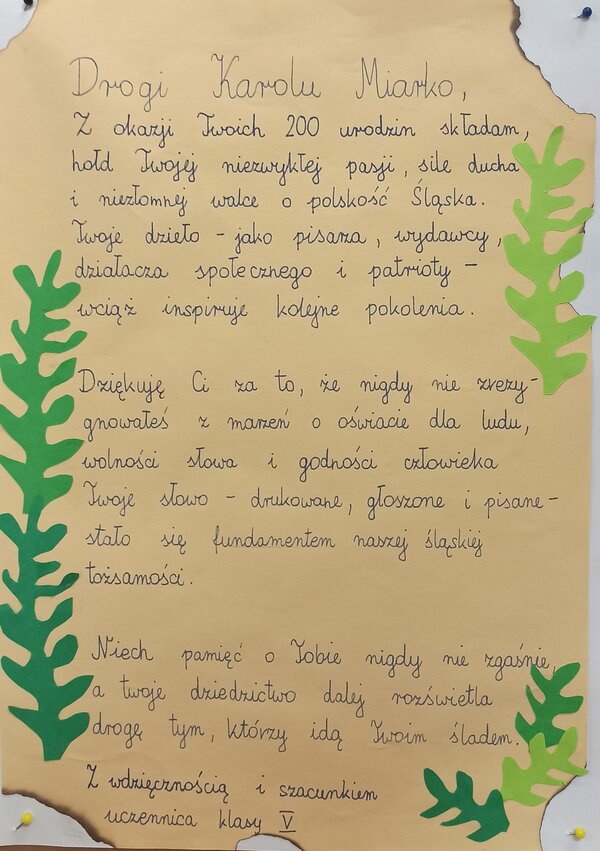 Drogi Karolu Miarko,
Z okazji Twoich 200 urodzin składam,
hołd Twojej niezwykłej pasji, sile ducha
i niezłomnej walce o polskość Śląska.
Twoje dzieło - jako pisarza, wydawcy,
działacza społecznego i patrioty -
wciąż inspiruje kolejne pokolenia.
Dziękuję Ci za to, że nigdy nie zrezy-
gnowałeś z marzeń o oświacie dla ludu,
wolności słowa i godności człowieka
Twoje słowo - drukowane, głoszone i pisane -
stało się fundamentem naszej śląskiej
tożsamości.
Niech pamięć o Tobie nigdy nie zgaśnie,
a twoje dziedzictwo dalej rozświetla
drogę tym, którzy idą Twoim śladem.
Z wdzięcznością i szacunkiem
uczennica klasy V